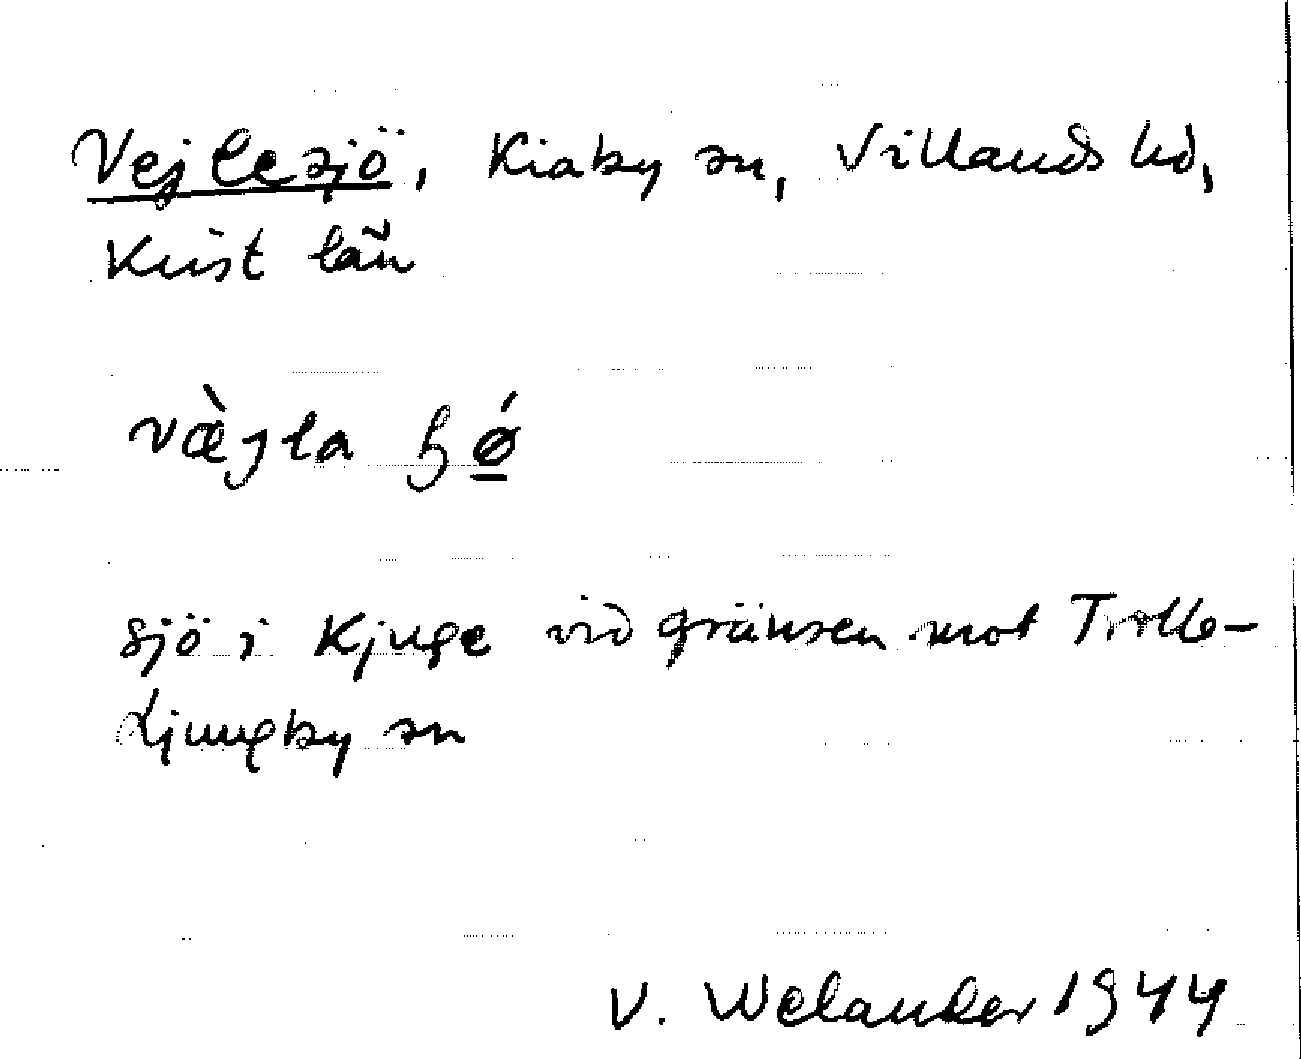 Vejlesjö, Kiaby sn, Villands hd,
Krist län
væ̀jla ɧǿ
sjö i Kjuge vid gränsen mot Trolle-
Ljungby sn
V. Welander 1944